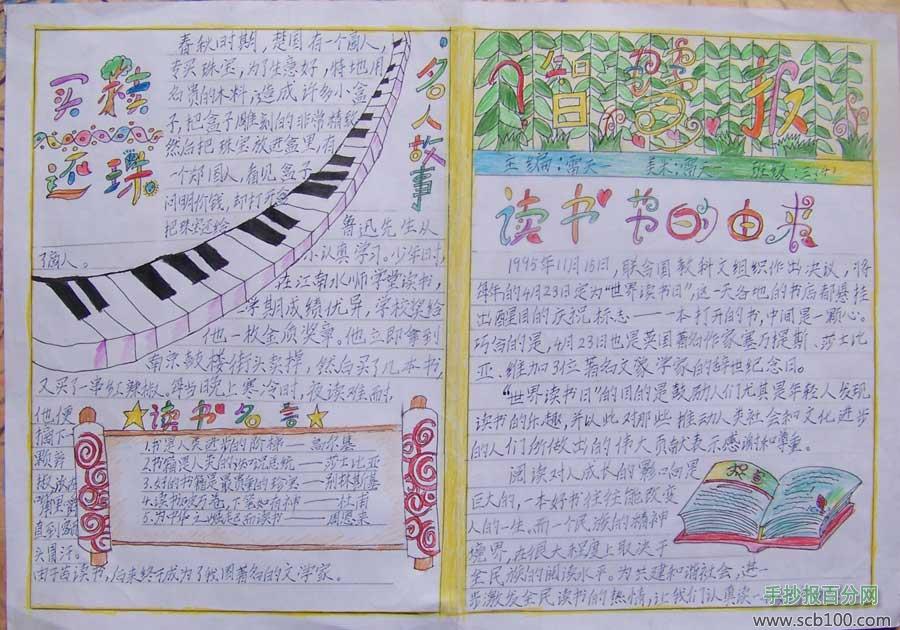 买椟还珠
春秋时期，楚国有一个商人，
专买珠宝，为了生意好，特地用
名贵的木料，造成许多小盒
子，把盒子雕刻的非常精致，
然后把珠宝放进盒里。有
一个郑国人，看见盒子，
问明价钱，却打开盒
把珠宝还给
了商人。
名人故事
鲁迅先生从
小认真学习。少年时，
在江南水师学堂读书，
学期成绩优异，学校奖给
他一枚金质奖章。他立即拿到
南京鼓楼街头卖掉，然后买了几本书，
又买了一串红辣椒。每当晚上寒冷时，夜读难耐，
他便
摘下一
颗辣
椒，放在
嘴里
直到
头冒汗。
由于苦读书，后来终于成为了我国著名的文学家。
读书名言
1.书是人类进步的阶梯——高尔基
2.书籍是人类的——莎士比亚
3.好的书籍是最贵重的珍宝——别林斯基
4.读书破万卷，下笔如有神——杜甫
5.为中华之崛起而读书——周恩来
报
主编：雷天 美术：雷天 班级：三
读书节的由来
1995年11月15日，联合国教科文组织作出决议，将
每年的4月23日定为“世界读书日”，这一天各地的书店都悬挂
出醒目的庆祝标志——一本打开的书，中间是一颗心。
巧合的是，4月23日也是英国著名作家塞万提斯、莎士比
亚、维加3位著名文学家的辞世纪念日。
“世界读书日”的目的是鼓励人们尤其是年轻人发现
读书的乐趣，并以此对那些推动人类社会和文化进步
的人们所做出的伟大贡献表示感谢和尊重。
阅读对人成长的影响是
巨大的，一本好书往往能改变
人的一生。而一个民族的精神
境界，在很大程度上取决于
全民族的阅读水平。为共建和谐社会，进一
步激发全民读书的热情，让我们认真读一
手抄报百分网
www.scb100.com